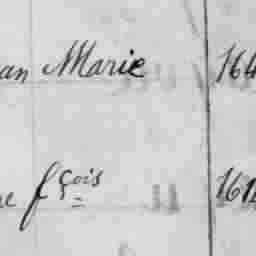 an Marie 164
e fçois 1614